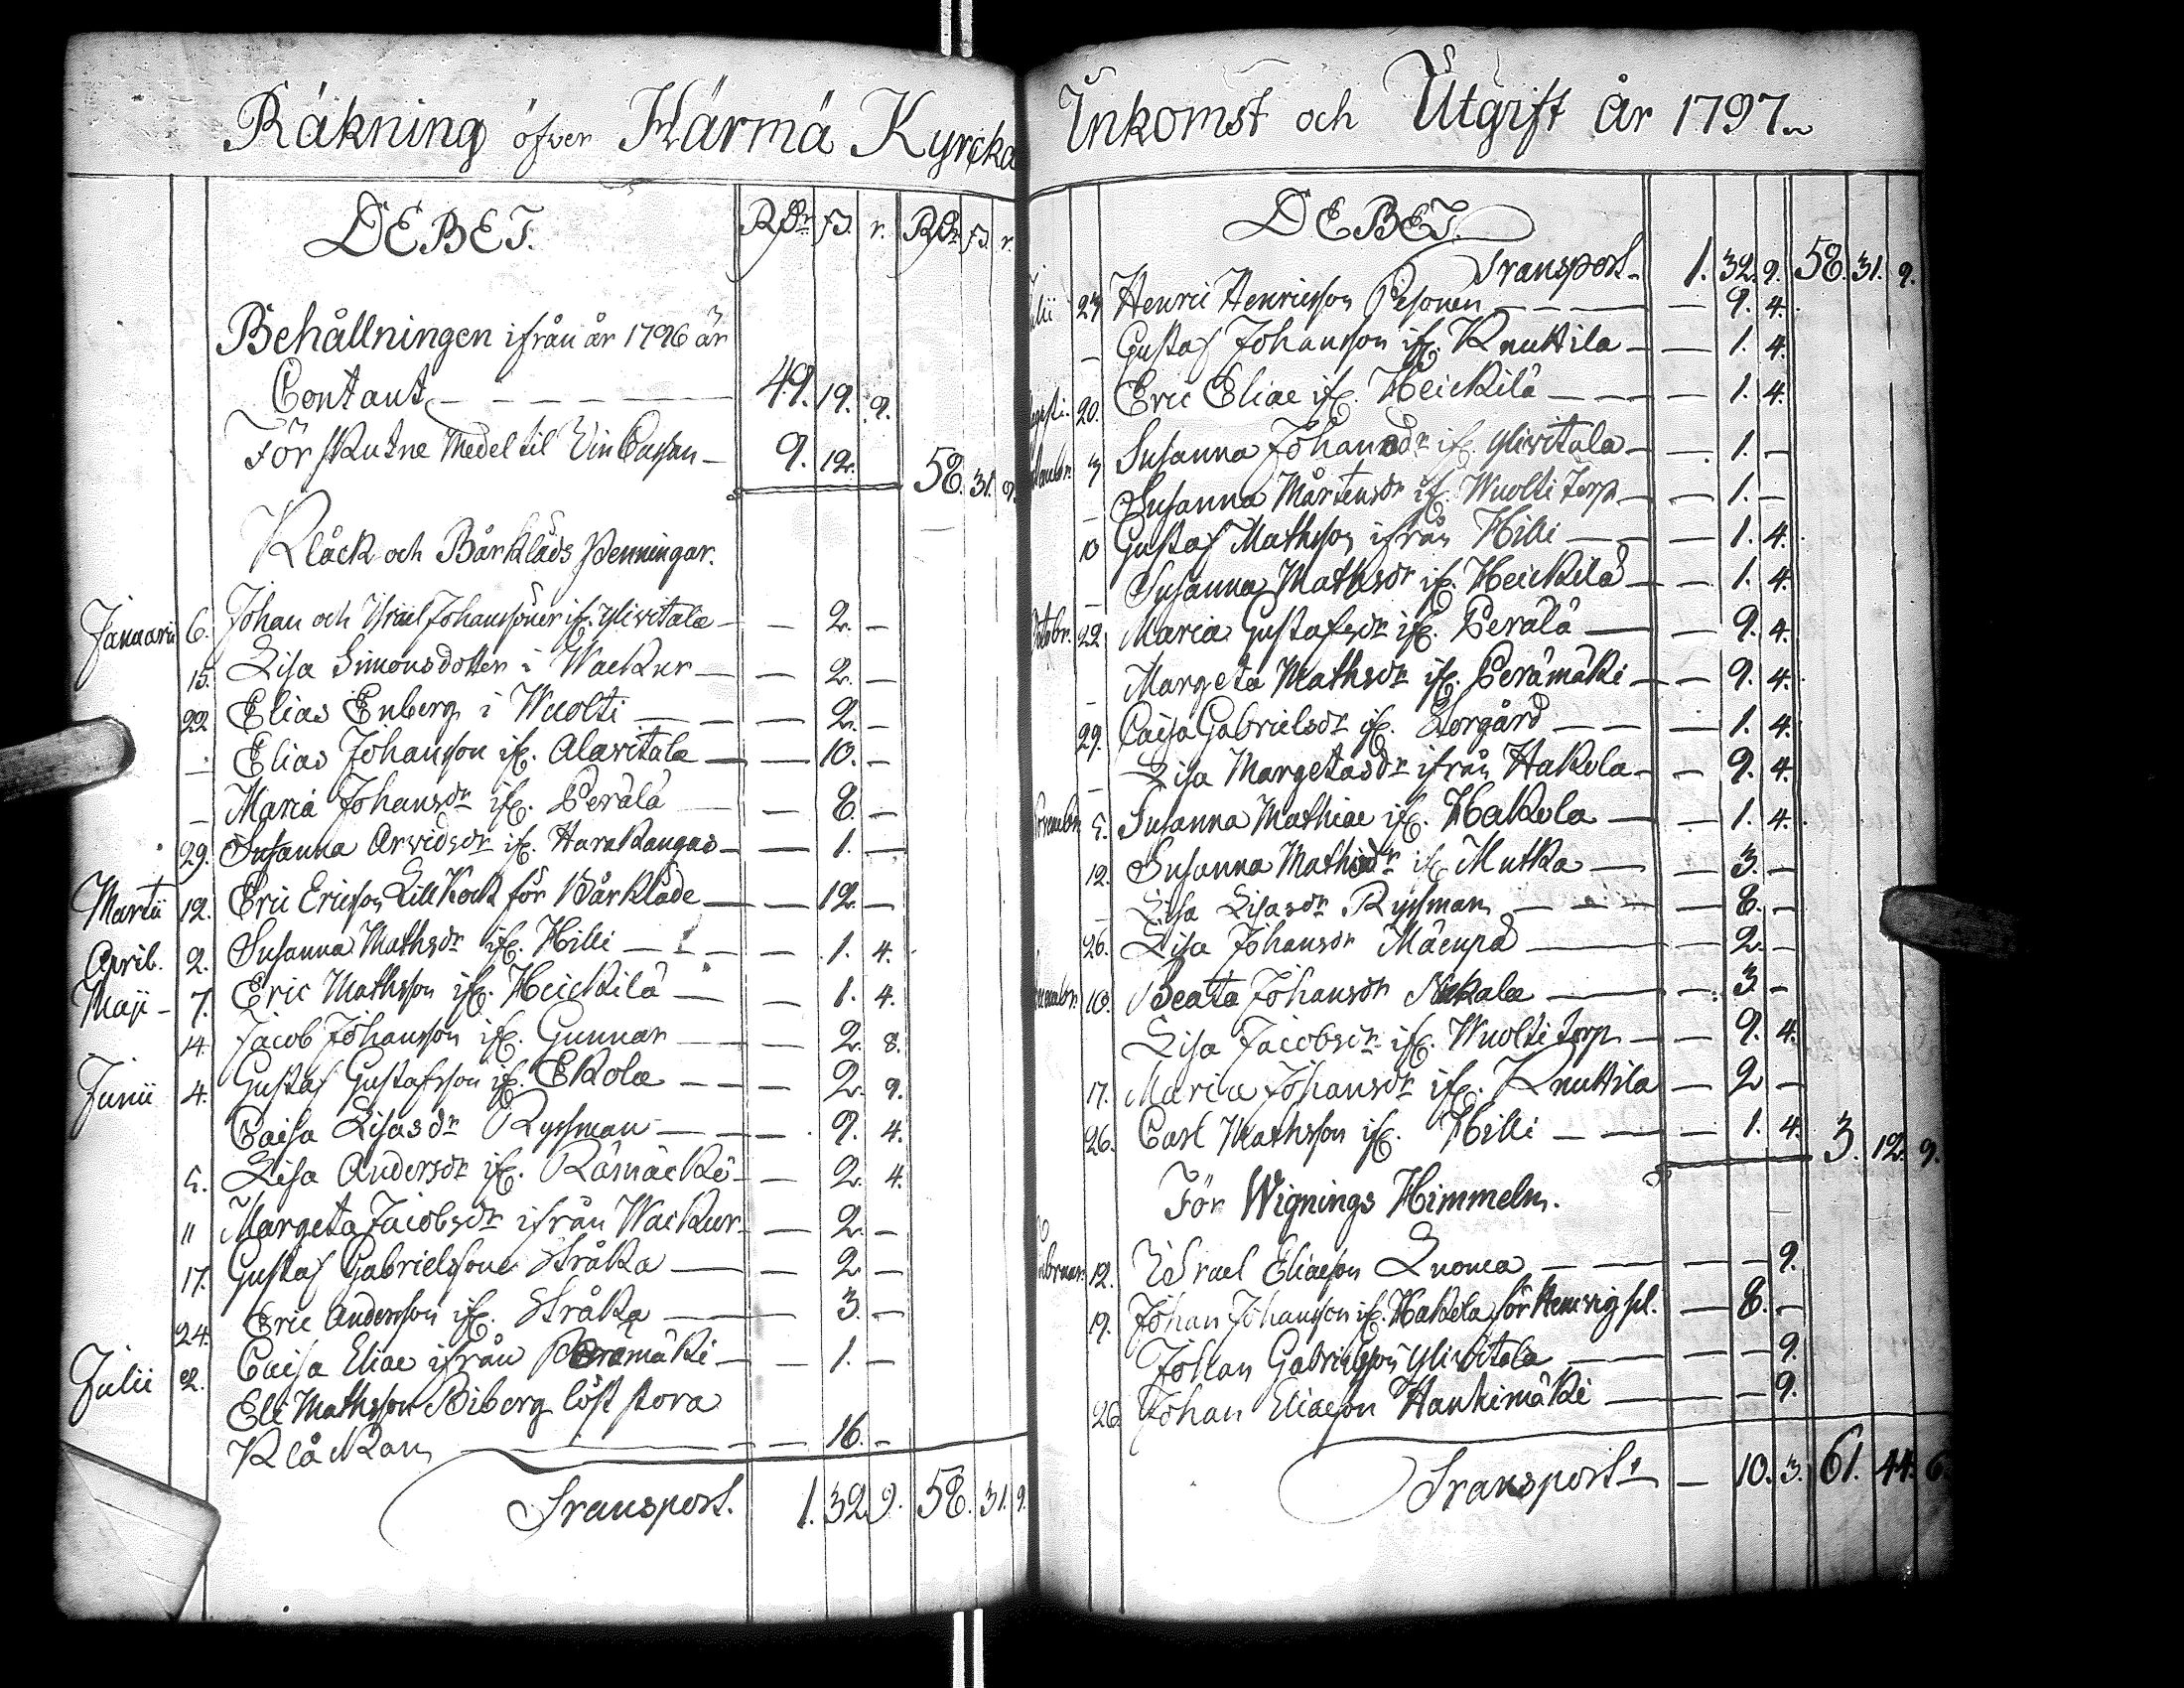 Räkning öfver Härmä Kyrcka
DEBET. Rdr ß. r. Rdr ß. r.
Behållningen ifrån år 1796 är
Contant 49. 19. 9.
För skutne Medel til Vin Cassan 9. 12. 58. 31. 9.
Klåck och Bårklåds Penningar.
Januarii 6. Johan och Israel Johanssöner if. Ylivitala — 2. —
15. Lisa Simonsdotter i Wackur — 2. —
22 Elias Enberg i Wuolti — 2. —
— Elias Johansson if. Alavitala — 10. —
— Maria Johansdr if. Perälä — 8. —
29. Susanna Arvidsdr if. Harakangas — 1. —
Martii 12. Eric Ericsson Lill Kock för Bårkläde — 12. —
April. 2. Susanna Mathsdr if. Hilli — 1. 4.
Maji 7. Eric Mathsson if. Heickilä — 1. 4.
14. Jacob Johansson if. Gunnar — 2. 8.
Junii 4. Gustaf Gustafsson if. Ekola — 2. 9.
Caisa Lisasdr Ryssman — 9. 4.
5. Lisa Andersdr if. Rämäcki — 2. 4.
11 Margeta Jacobsdr ifrån Wackur — 2. —
17. Gustaf Gabrielsson Stråka — 2. —
24. Eric Andersson if. Stråka — 3. —
Julii 2. Caisa Eliae ifrån Peramäki — 1. —
Eli Mathsson Biberg löst stora
Klåckan — 16. —
Transport. 1. 32. 9. 58. 31. 9.
Inkomst och Utgift År 1797.
DEBET.
Transport. 1. 32. 9. 58. 31. 9.
23 Henric Henricsson Pesonen — 9. 4.
— Gustaf Johansson if. Knuttila — 1. 4.
20. Eric Eliae if. Heickilä — 1. 4.
3 Susanna Johansdr if. Ylivitala — 1. —
— Susanna Mårtensdr if. Wuolti torp — 1. —
10 Gustaf Mathsson ifrån Hilli — 1. 4.
— Susanna Mathsdr if. Heickilä — 1. 4.
22. Maria Gustafsdr if. Perälä — 9. 4.
— Margeta Mathsdr if. Perämäki — 9. 4.
29. Caisa Gabrielsdr if. Storgård — 1. 4.
— Lisa Margetasdr ifrån Hakola — 9. 4.
5. Susanna Mathiae if. Hakola — 1. 4.
12. Susanna Mathsdr if. Mutka — 3. —
— Lisa Lisasdr Ryssman — 8. —
26. Lisa Johansdr Mäenpä — 2. —
10. Beata Johansdr Nikala — 3. —
Lisa Jacobsdr if. Wuolti torp — 9. 4.
17. Maria Johansdr if. Knuttila — 2 —
26. Carl Mathsson if. Hilli — 1. 4. 3. 12. 9.
För Wignings Himmeln.
12. Israel Eliaeson Luoma — — 9.
19. Johan Johansson if. Hakola för hemvigsl. — 8. —
Johan Gabrielsson Ylivitala — — 9.
26 Johan Eliaeson Hankimäki — — 9.
Transport — 10. 3. 61. 44. 6.